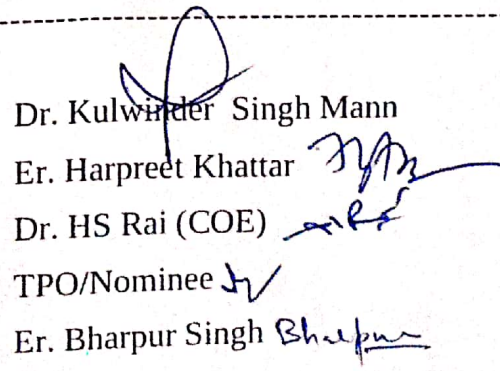 Dr. Kulwinder Singh Mann
Er. Harpreet Khattar
Dr. HS Rai (COE)
TPO/Nominee
Er. Bharpur Singh Bharpur